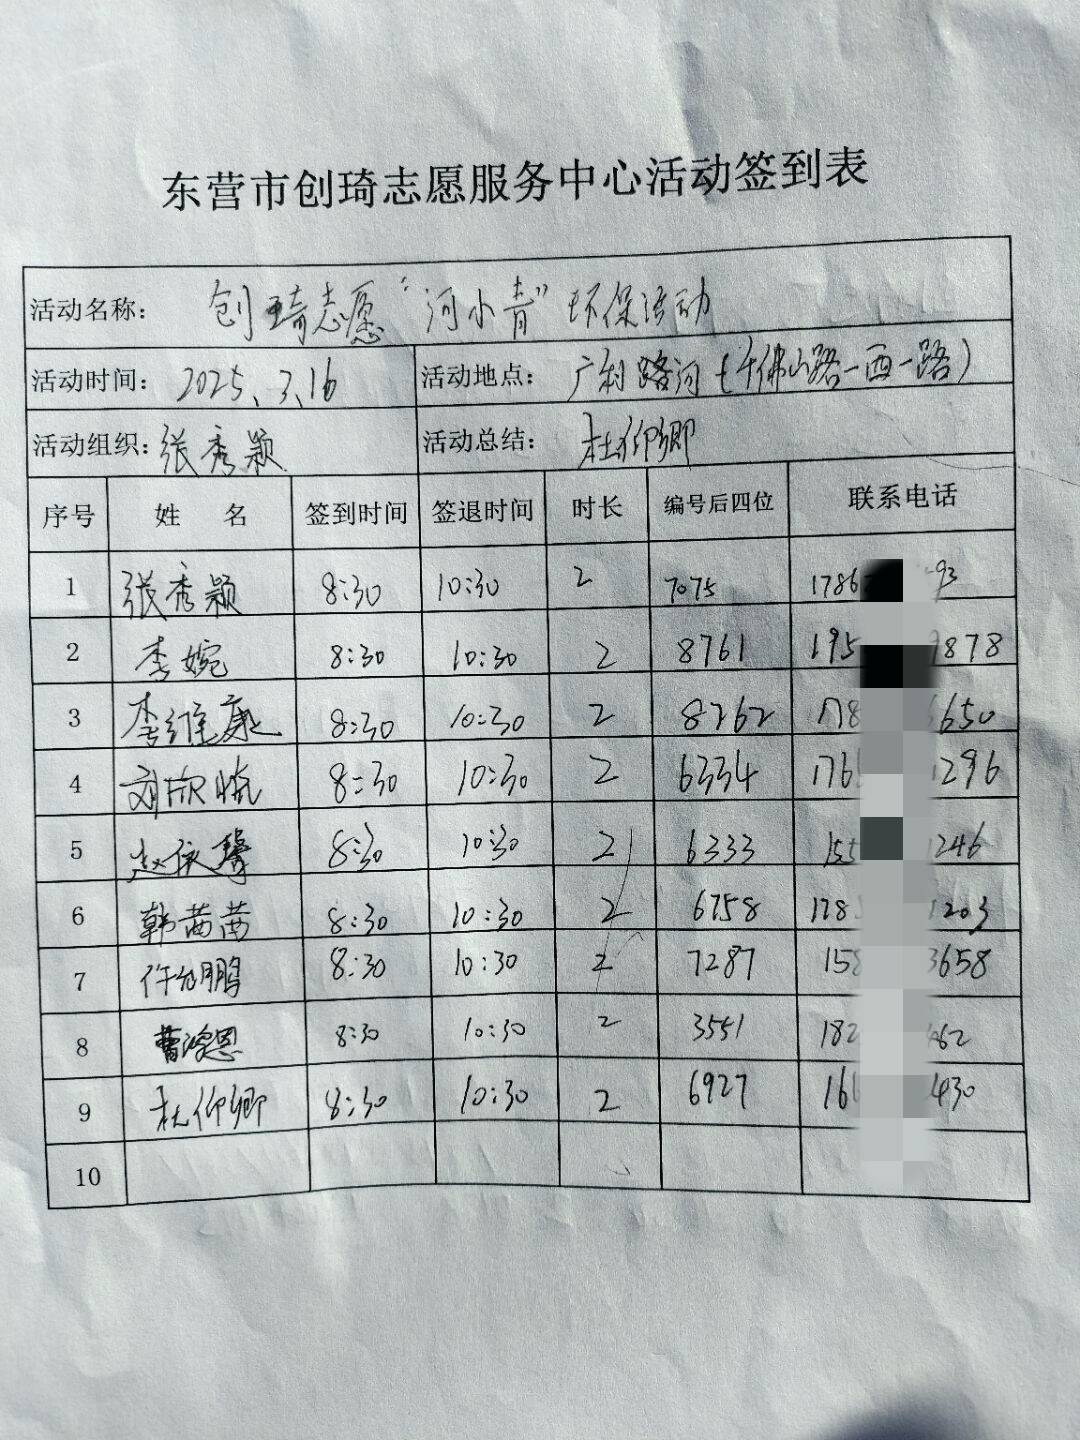 东营市创琦志愿服务中心活动签到表
活动名称: 创琦志愿“河小青”环保活动
活动时间: 2025、3、16 活动地点: 广利路河(千佛山路-西一路)
活动组织: 张秀颖 活动总结: 杜仰卿
序号 姓 名 签到时间 签退时间 时长 编号后四位 联系电话
1 张秀颖 8:30 10:30 2 7075 1786 93
2 李婉 8:30 10:30 2 8761 195 9878
3 李维康 8:30 10:30 2 8262 178 650
4 刘欣晓 8:30 10:30 2 6334 176 1296
5 赵依馨 8:30 10:30 2 6333 155 1246
6 韩茜茜 8:30 10:30 2 6758 178 1203
7 8:30 10:30 2 7287 158 3658
8 曹鸿恩 8:30 10:30 2 3551 182 62
9 杜仰卿 8:30 10:30 2 6927 16 430
10